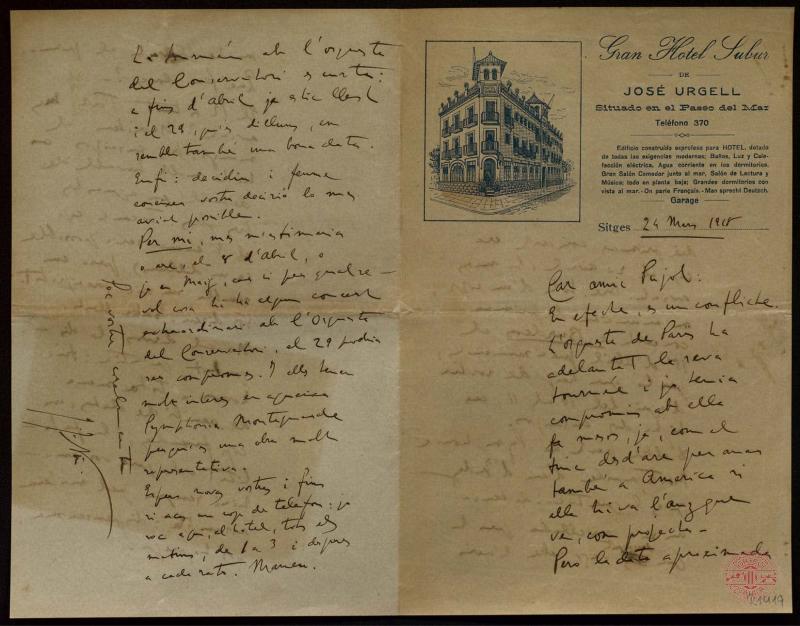 Gran Hotel Subur
DE
JOSÉ URGELL
Situado en el Paseo del Mar
Teléfono 370
Edificio construido expreso para HOTEL, dotado
de todas las exigencias modernas; Baños, Luz y Cale-
facción eléctrica. Agua corriente en los dormitorios.
Gran Salón Comedor junto al mar, Salón de Lectura y
Música; todo en planta baja; Grandes dormitorios con
vista al mar.-On parle Français.-Man sprecht Deutsch.
Garage
Sitges 24 Mars
Car amic Pujol:
En efecte, es un conflicte.
L'orquestra de Paris ha
adelantat la seva
tournée i ja tenia
compromis ab ella
fa mesos, ja, com el
tinc desd'ara per anar
també a America si
ella hi va l'any que
ve, com projecta-
Pero la data aproximada
de la tournée ab l'orquestra
del Conservatori es curta:
a fins d'abril ja estic llest
i el 29, que's dilluns, em
sembla també una bona data.
Enfi: decidiu i feume
coneixer vostra decisió lo mes
aviat posible.
Per mi, mes m'estimaria
o are, el 8 d'Abril, o
ja en Maig, car si per qualse-
vol cosa hi ha algun concert
extraordinari ab l'Orquestra
del Conservatori, el 29 podria
ser compromes. I ells tenen
molt interes en aqueixa
Symphonia Montagnarde
perque es una obra molt
representativa.
Espero noves vostres i fins
si acas un cop de telefon: ja
soc aqui, al hotel, tots els
matins, de 1 a 3 i despres
a cada rato. Maneu.